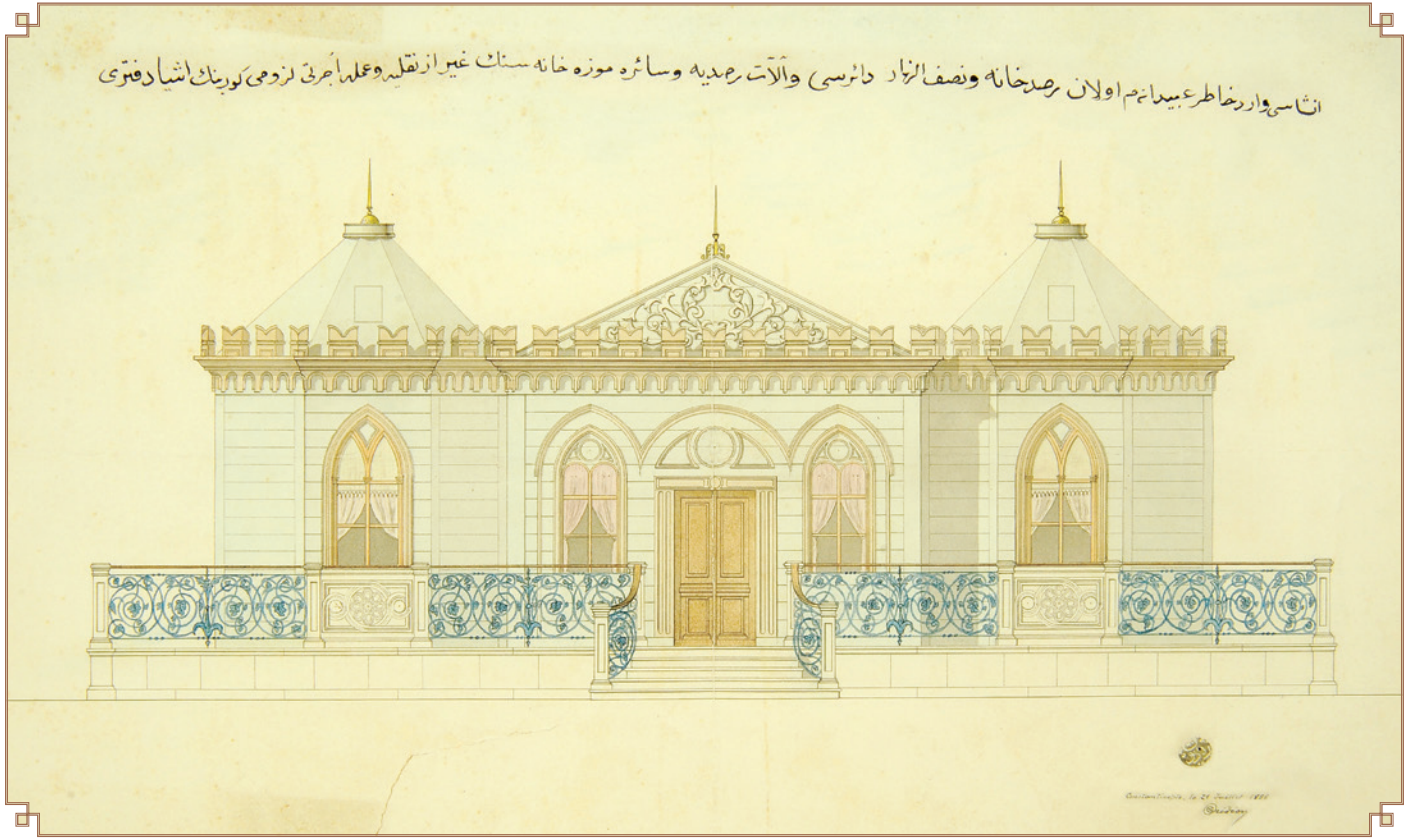 انشاسی وارد خاطر عبیدانه‌م اولان رصدخانه ونصف النهار دائره‌سی وآلات رصدیه وسائره موزه خانه سنك غیر از نقلیه وعمله اجرتی لزومی كورینان اشیا دفتری
Constantinople, le 21 Juillet